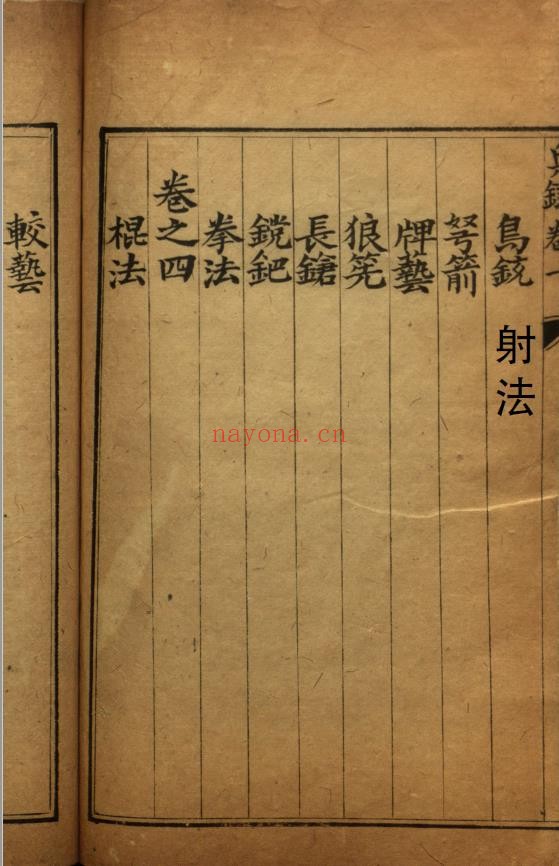 鳥銃
射法
弩箭
牌藝
狼筅
長鎗
鎲鈀
拳法
卷之四
棍法
較藝
nayona.cn